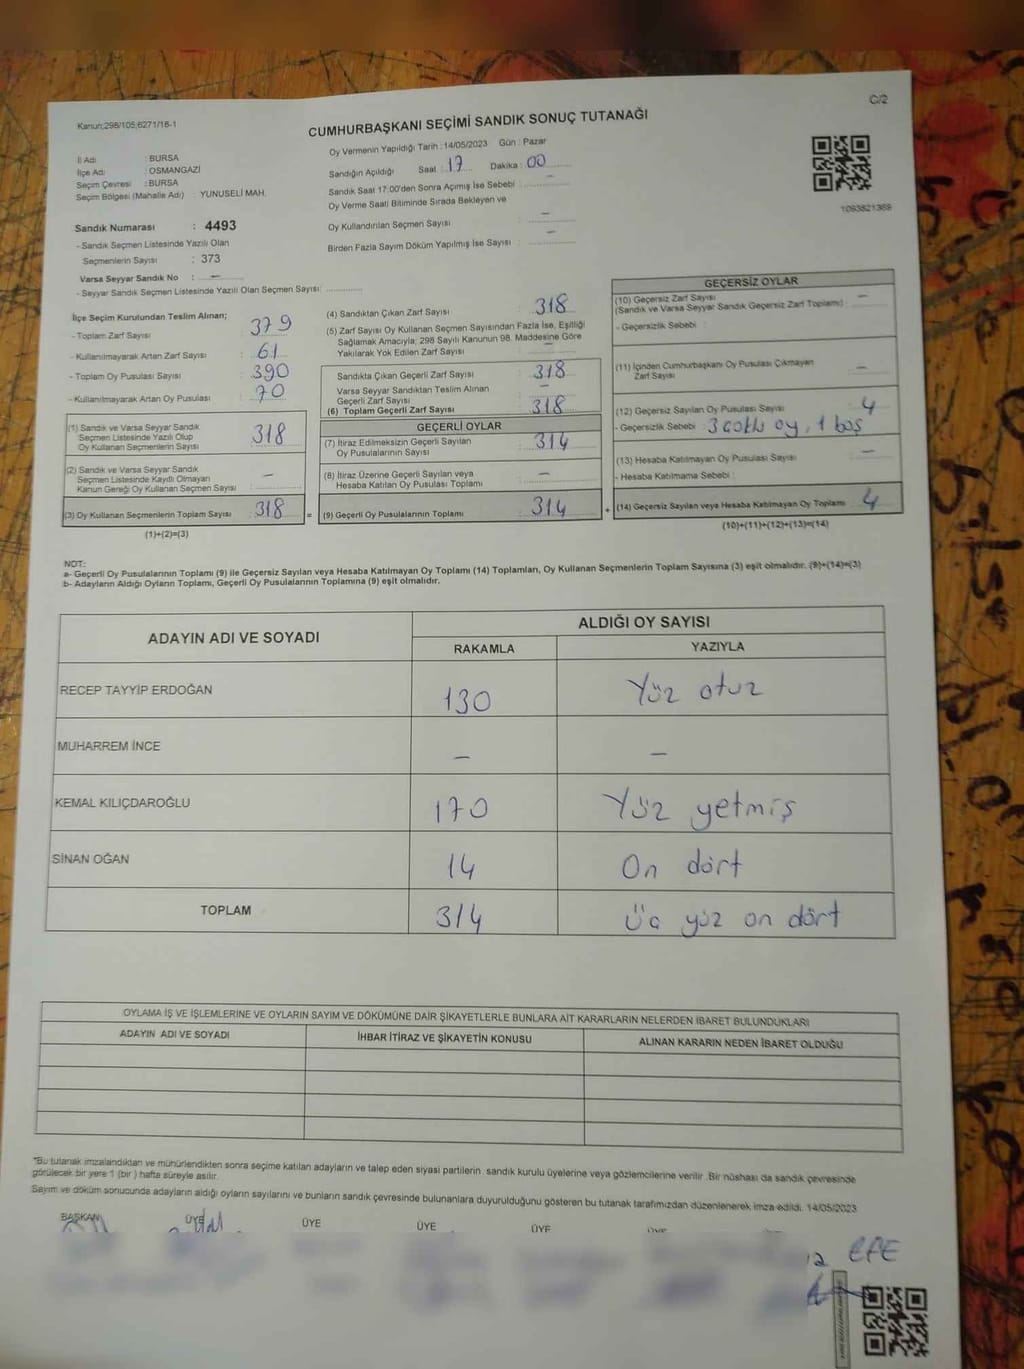 C/2
Kanun;298/105;6271/16-1
CUMHURBAŞKANI SEÇİMİ SANDIK SONUÇ TUTANAĞI
İl Adı : BURSA
İlçe Adı : OSMANGAZİ
Seçim Çevresi : BURSA
Seçim Bölgesi (Mahalle Adı) : YUNUSELİ MAH.
Sandık Numarası : 4493
- Sandık Seçmen Listesinde Yazılı Olan
Seçmenlerin Sayısı : 373
Varsa Seyyar Sandık No : –
- Seyyar Sandık Seçmen Listesinde Yazılı Olan Seçmen Sayısı:
Oy Vermenin Yapıldığı Tarih : 14/05/2023 Gün : Pazar
Sandığın Açıldığı Saat : 17 Dakika : 00
Sandık Saat 17:00'den Sonra Açımış İse Sebebi : –
Oy Verme Saati Bitiminde Sırada Bekleyen ve
Oy Kullandırılan Seçmen Sayısı : –
Birden Fazla Sayım Döküm Yapılmış İse Sayısı : –
1093821369
İlçe Seçim Kurulundan Teslim Alınan;
- Toplam Zarf Sayısı : 379
- Kullanılmayarak Artan Zarf Sayısı : 61
- Toplam Oy Pusulası Sayısı : 390
- Kullanılmayarak Artan Oy Pusulası : 70
(1) Sandık ve Varsa Seyyar Sandık
Seçmen Listesinde Yazılı Olup
Oy Kullanan Seçmenlerin Sayısı : 318
(2) Sandık ve Varsa Seyyar Sandık
Seçmen Listesinde Kaydı Olmayan
Kanun Gereği Oy Kullanan Seçmen Sayısı : –
(3) Oy Kullanan Seçmenlerin Toplam Sayısı : 318
(1)+(2)=(3)
(4) Sandıktan Çıkan Zarf Sayısı : 318
(5) Zarf Sayısı Oy Kullanan Seçmen Sayısından Fazla İse, Eşitliği
Sağlamak Amacıyla; 298 Sayılı Kanunun 98. Maddesine Göre
Yakılarak Yok Edilen Zarf Sayısı : –
Sandıkta Çıkan Geçerli Zarf Sayısı : 318
Varsa Seyyar Sandıktan Teslim Alınan
Geçerli Zarf Sayısı : –
(6) Toplam Geçerli Zarf Sayısı : 318
GEÇERLİ OYLAR
(7) İtiraz Edilmeksizin Geçerli Sayılan
Oy Pusulalarının Sayısı : 314
(8) İtiraz Üzerine Geçerli Sayılan veya
Hesaba Katılan Oy Pusulası Toplamı : –
= (9) Geçerli Oy Pusulalarının Toplamı : 314
GEÇERSİZ OYLAR
(10) Geçersiz Zarf Sayısı : –
(Sandık ve Varsa Seyyar Sandık Geçersiz Zarf Toplamı)
- Geçersizlik Sebebi :
(11) İçinden Cumhurbaşkanı Oy Pusulası Çıkmayan
Zarf Sayısı : –
(12) Geçersiz Sayılan Oy Pusulası Sayısı : 4
- Geçersizlik Sebebi : 3 oy, 1 boş
(13) Hesaba Katılmayan Oy Pusulası Sayısı : –
- Hesaba Katılmama Sebebi :
+ (14) Geçersiz Sayılan veya Hesaba Katılmayan Oy Toplamı : 4
(10)+(11)+(12)+(13)=(14)
NOT:
a- Geçerli Oy Pusulalarının Toplamı (9) ile Geçersiz Sayılan veya Hesaba Katılmayan Oy Toplamı (14) Toplamları, Oy Kullanan Seçmenlerin Toplam Sayısına (3) eşit olmalıdır. (9)+(14)=(3)
b- Adayların Aldığı Oyların Toplamı, Geçerli Oy Pusulalarının Toplamına (9) eşit olmalıdır.
ADAYIN ADI VE SOYADI ALDIĞI OY SAYISI
RAKAMLA YAZIYLA
RECEP TAYYİP ERDOĞAN 130 Yüz otuz
MUHARREM İNCE – –
KEMAL KILIÇDAROĞLU 170 Yüz yetmiş
SİNAN OĞAN 14 On dört
TOPLAM 314 Üç yüz on dört
OYLAMA İŞ VE İŞLEMLERİNE VE OYLARIN SAYIM VE DÖKÜMÜNE DAİR ŞİKAYETLERLE BUNLARA AİT KARARLARIN NELERDEN İBARET BULUNDUKLARI
ADAYIN ADI VE SOYADI İHBAR İTİRAZ VE ŞİKAYETİN KONUSU ALINAN KARARIN NEDEN İBARET OLDUĞU
*Bu tutanak imzalandıktan ve mühürlendikten sonra seçime katılan adayların ve talep eden siyasi partilerin sandık kurulu üyelerine veya gözlemcilerine verilir. Bir nüshası da sandık çevresinde
görülecek bir yere 1 (bir) hafta süreyle asılır.
Sayım ve döküm sonucunda adayların aldığı oyların sayılarını ve bunların sandık çevresinde bulunanlara duyurulduğunu gösteren bu tutanak tarafımızdan düzenlenerek imza edildi. 14/05/2023
BAŞKAN ÜYE ÜYE ÜYE ÜYE
EFE